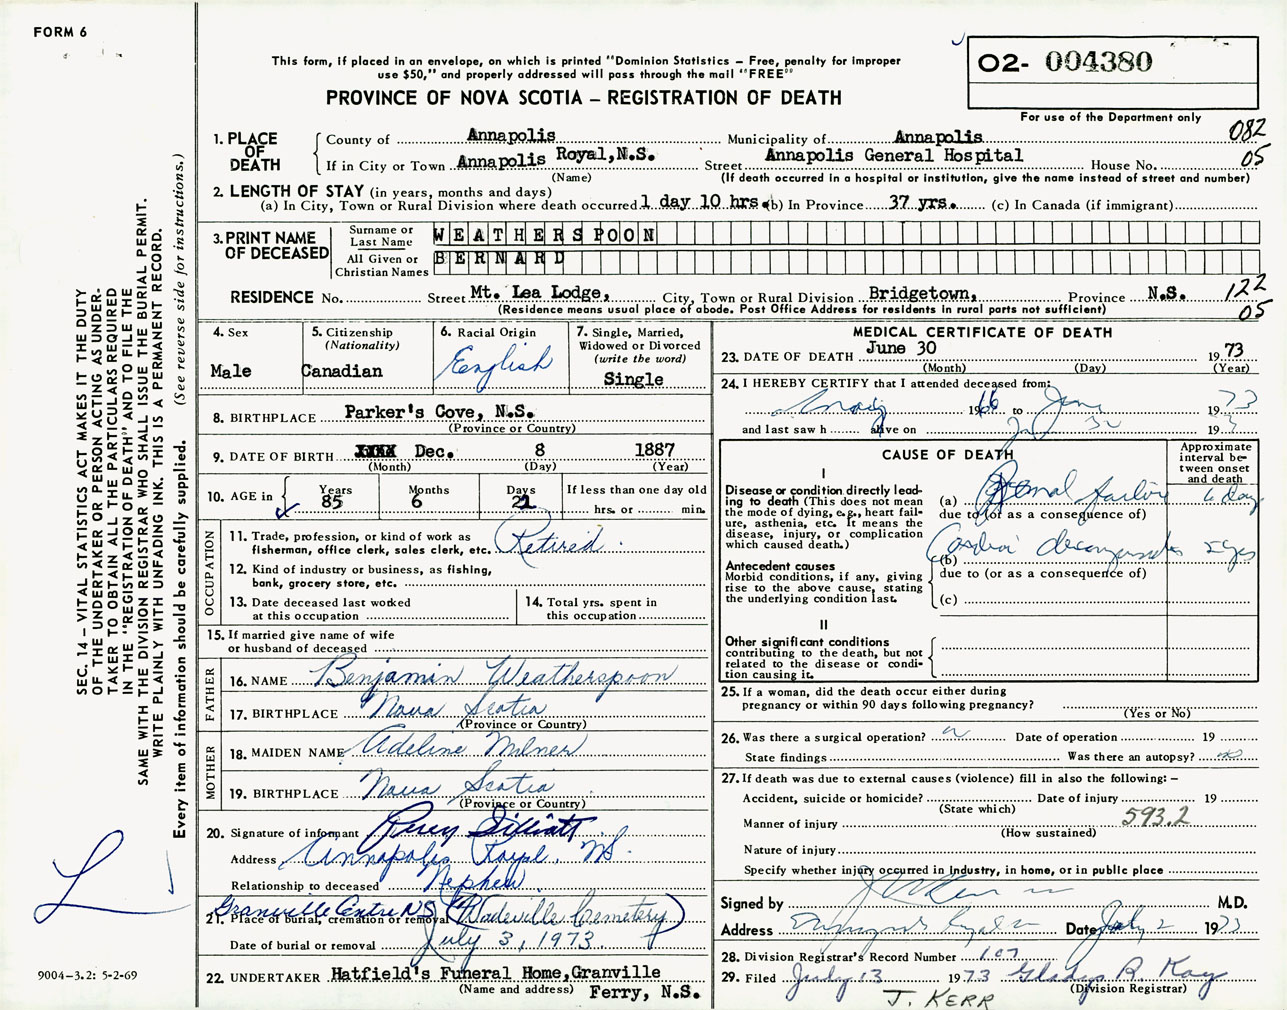 FORM 6
This form, if placed in an envelope, on which is printed "Dominion Statistics – Free, penalty for improper
use $50," and properly addressed will pass through the mail "FREE"
PROVINCE OF NOVA SCOTIA – REGISTRATION OF DEATH
02- 004380
For use of the Department only
082
05
1. PLACE OF DEATH
County of Annapolis Municipality of Annapolis
If in City or Town Annapolis Royal, N.S. Street Annapolis General Hospital House No.
(Name) (If death occurred in a hospital or institution, give the name instead of street and number)
2. LENGTH OF STAY (in years, months and days)
(a) In City, Town or Rural Division where death occurred 1 day 10 hrs. (b) In Province 37 yrs. (c) In Canada (if immigrant)
3. PRINT NAME OF DECEASED
Surname or Last Name WEATHERSPOON
All Given or Christian Names BERNARD
RESIDENCE No. Street Mt. Lea Lodge, City, Town or Rural Division Bridgetown, Province N.S.
(Residence means usual place of abode. Post Office Address for residents in rural parts not sufficient)
122
05
4. Sex
Male
5. Citizenship
(Nationality)
Canadian
6. Racial Origin
English
7. Single, Married,
Widowed or Divorced
(write the word)
Single
8. BIRTHPLACE Parker's Cove, N.S.
(Province or Country)
9. DATE OF BIRTH Dec. 8 1887
(Month) (Day) (Year)
10. AGE in Years Months Days If less than one day old
85 6 hrs. or min.
OCCUPATION
11. Trade, profession, or kind of work as
fisherman, office clerk, sales clerk, etc. Retired
12. Kind of industry or business, as fishing,
bank, grocery store, etc.
13. Date deceased last worked
at this occupation
14. Total yrs. spent in
this occupation
15. If married give name of wife
or husband of deceased
FATHER
16. NAME Benjamin Weatherspoon
17. BIRTHPLACE Nova Scotia
(Province or Country)
MOTHER
18. MAIDEN NAME Adeline Milner
19. BIRTHPLACE Nova Scotia
(Province or Country)
20. Signature of informant Percy
Address Annapolis Royal, NS.
Relationship to deceased Nephew
21. Place of burial, cremation or removal Granville Centre NS (Wadeville Cemetery)
Date of burial or removal July 3, 1973
22. UNDERTAKER Hatfield's Funeral Home, Granville
(Name and address) Ferry, N.S.
MEDICAL CERTIFICATE OF DEATH
23. DATE OF DEATH June 30 1973
(Month) (Day) (Year)
24. I HEREBY CERTIFY that I attended deceased from:
19 to June 1973
and last saw h alive on 19
CAUSE OF DEATH
Approximate
interval be-
tween onset
and death
I
Disease or condition directly lead-
ing to death (This does not mean
the mode of dying, e.g., heart fail-
ure, asthenia, etc. It means the
disease, injury, or complication
which caused death.)
(a) Renal failure
due to (or as a consequence of)
(b)
due to (or as a consequence of)
(c)
Antecedent causes
Morbid conditions, if any, giving
rise to the above cause, stating
the underlying condition last.
II
Other significant conditions
contributing to the death, but not
related to the disease or condi-
tion causing it.
25. If a woman, did the death occur either during
pregnancy or within 90 days following pregnancy?
(Yes or No)
26. Was there a surgical operation? Date of operation 19
State findings Was there an autopsy? no
27. If death was due to external causes (violence) fill in also the following: –
Accident, suicide or homicide? Date of injury 19
(State which)
Manner of injury 593.2
(How sustained)
Nature of injury
Specify whether injury occurred in industry, in home, or in public place
Signed by M.D.
Address Date July 2 1973
28. Division Registrar's Record Number 107
29. Filed July 13 1973 Gladys R. Kay
(Division Registrar)
J. KERR
SEC. 14 – VITAL STATISTICS ACT MAKES IT THE DUTY
OF THE UNDERTAKER OR PERSON ACTING AS UNDER-
TAKER TO OBTAIN ALL THE PARTICULARS REQUIRED
IN THE "REGISTRATION OF DEATH" AND TO FILE THE
SAME WITH THE DIVISION REGISTRAR WHO SHALL ISSUE THE BURIAL PERMIT.
WRITE PLAINLY WITH UNFADING INK. THIS IS A PERMANENT RECORD.
Every item of information should be carefully supplied. (See reverse side for instructions.)
9004–3.2: 5-2-69